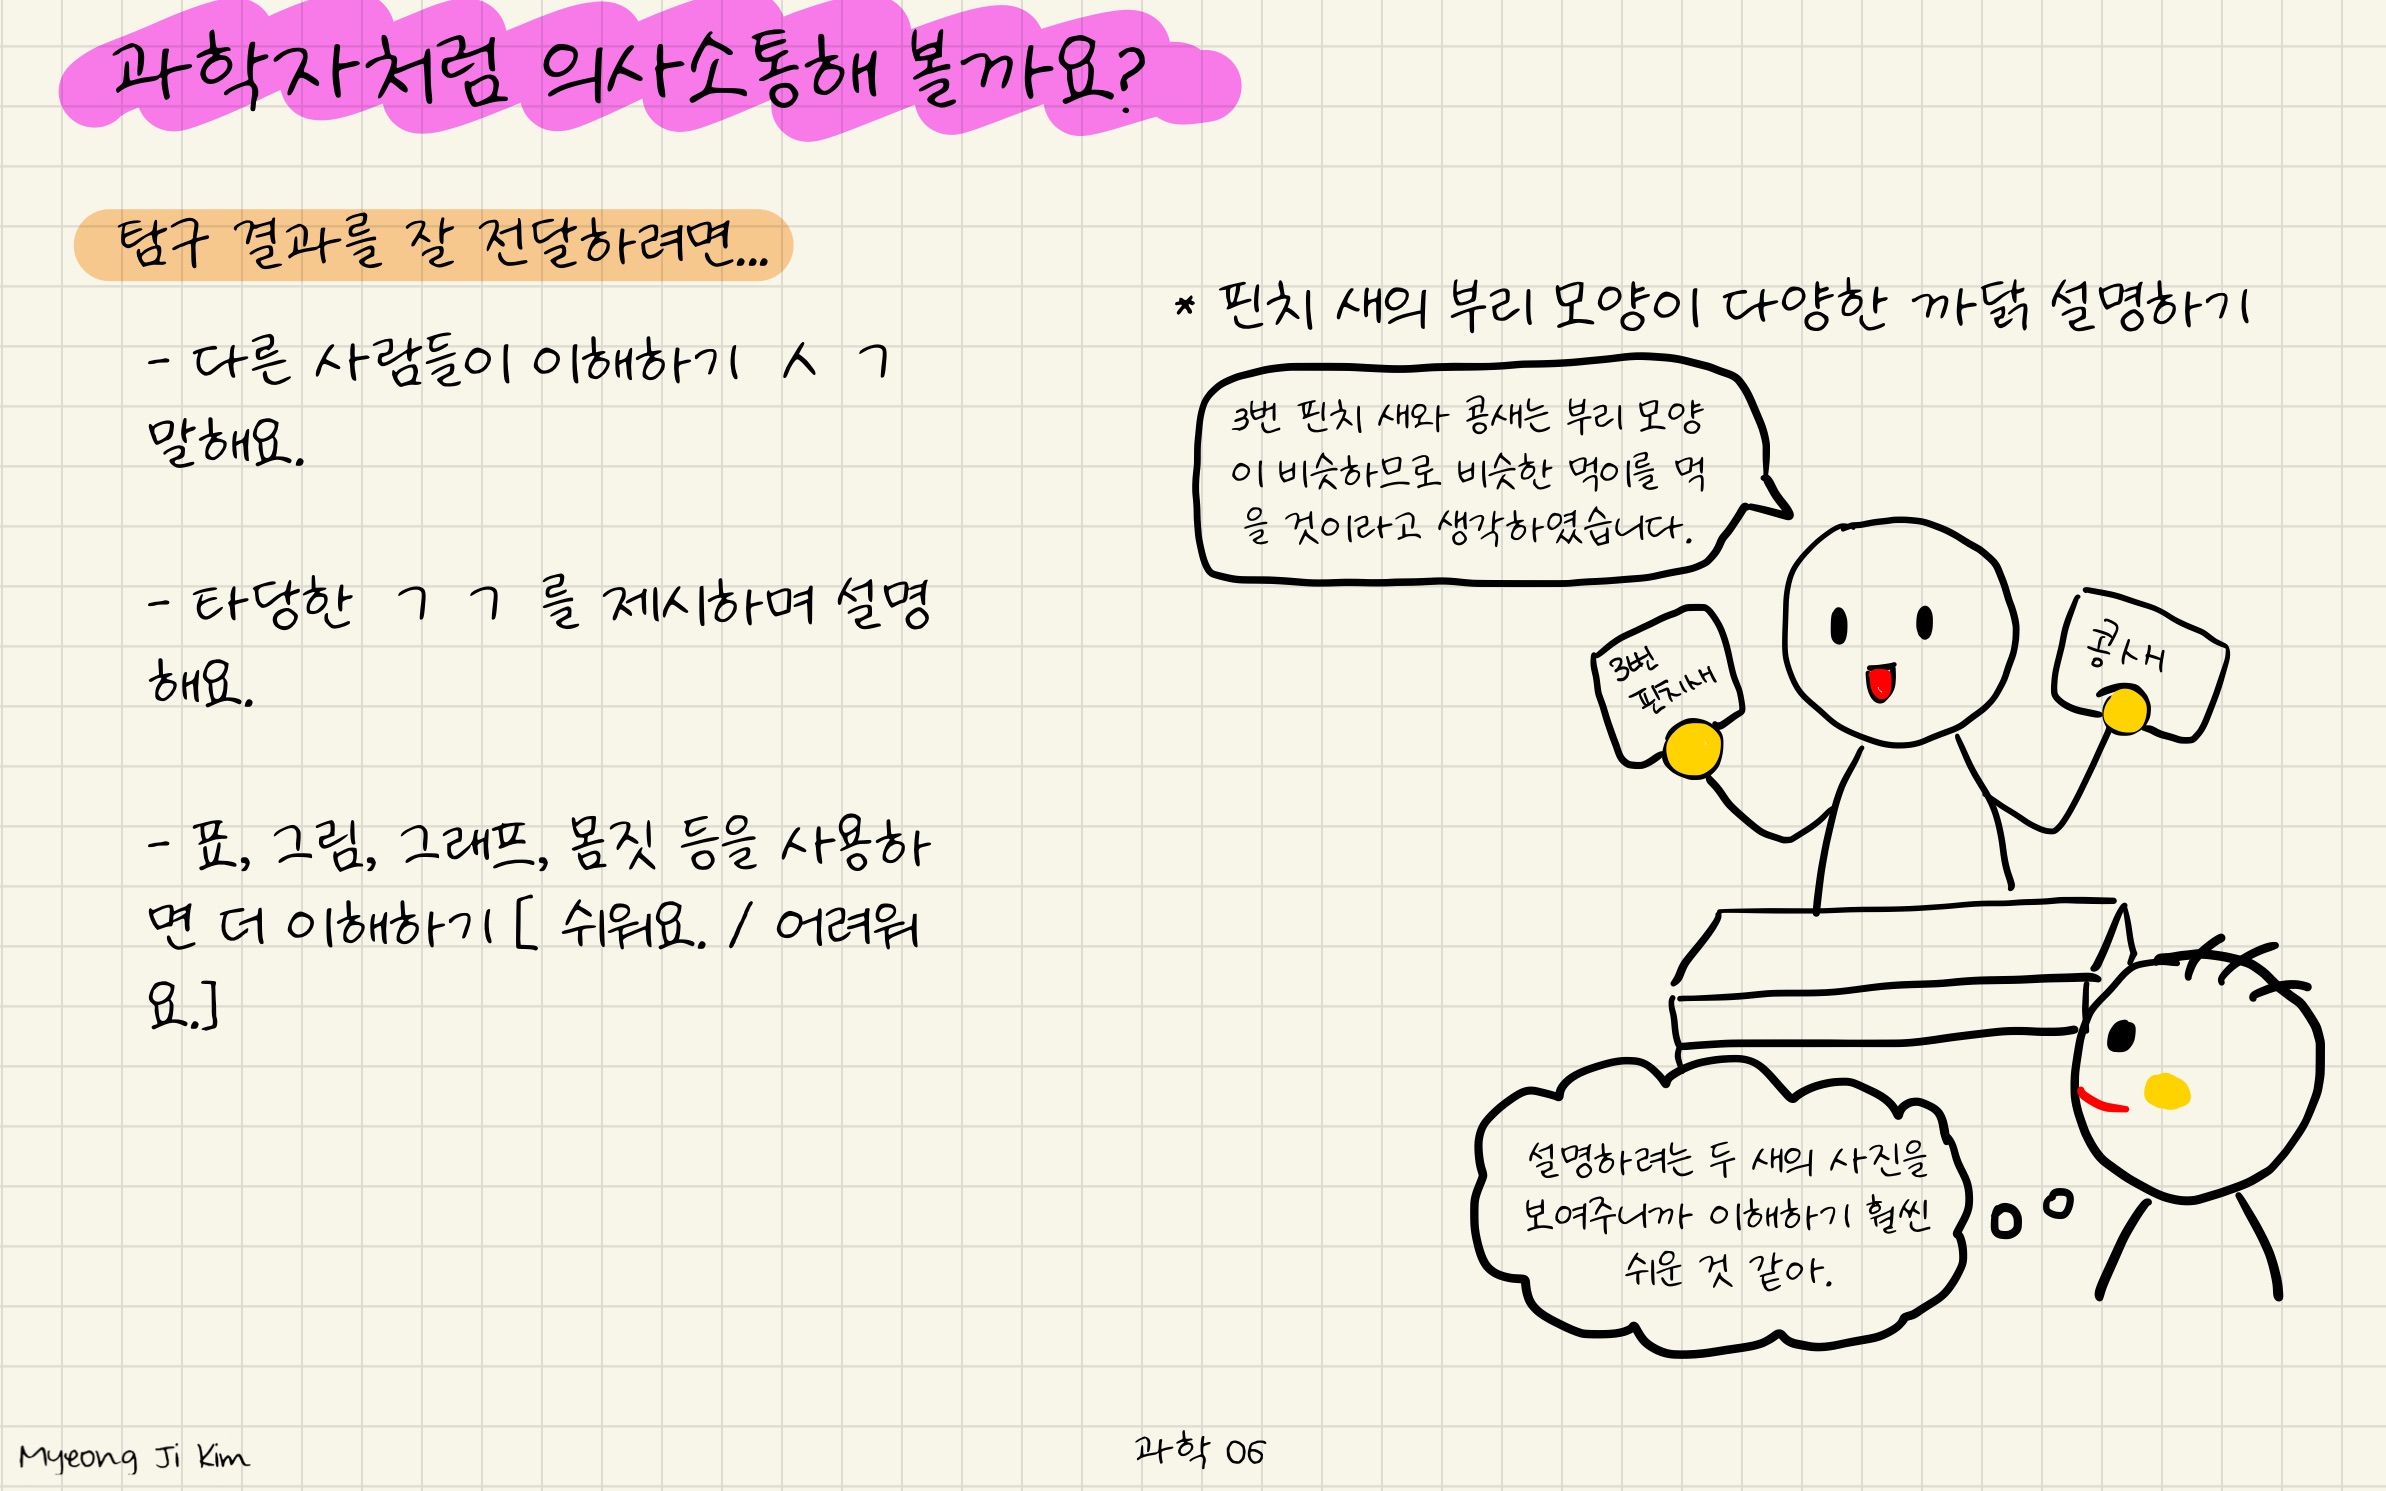 과학자처럼 의사소통해 볼까요?
탐구 결과를 잘 전달하려면...
- 다른 사람들이 이해하기 ㅅ ㄱ
말해요.
- 타당한 ㄱ ㄱ 를 제시하며 설명
해요.
- 표, 그림, 그래프, 몸짓 등을 사용하
면 더 이해하기 [ 쉬워요. / 어려워
요.]
* 핀치 새의 부리 모양이 다양한 까닭 설명하기
3번 핀치 새와 콩새는 부리 모양
이 비슷하므로 비슷한 먹이를 먹
을 것이라고 생각하였습니다.
3번
핀치새
콩새
설명하려는 두 새의 사진을
보여주니까 이해하기 훨씬
쉬운 것 같아.
Myeong Ji Kim
과학 06